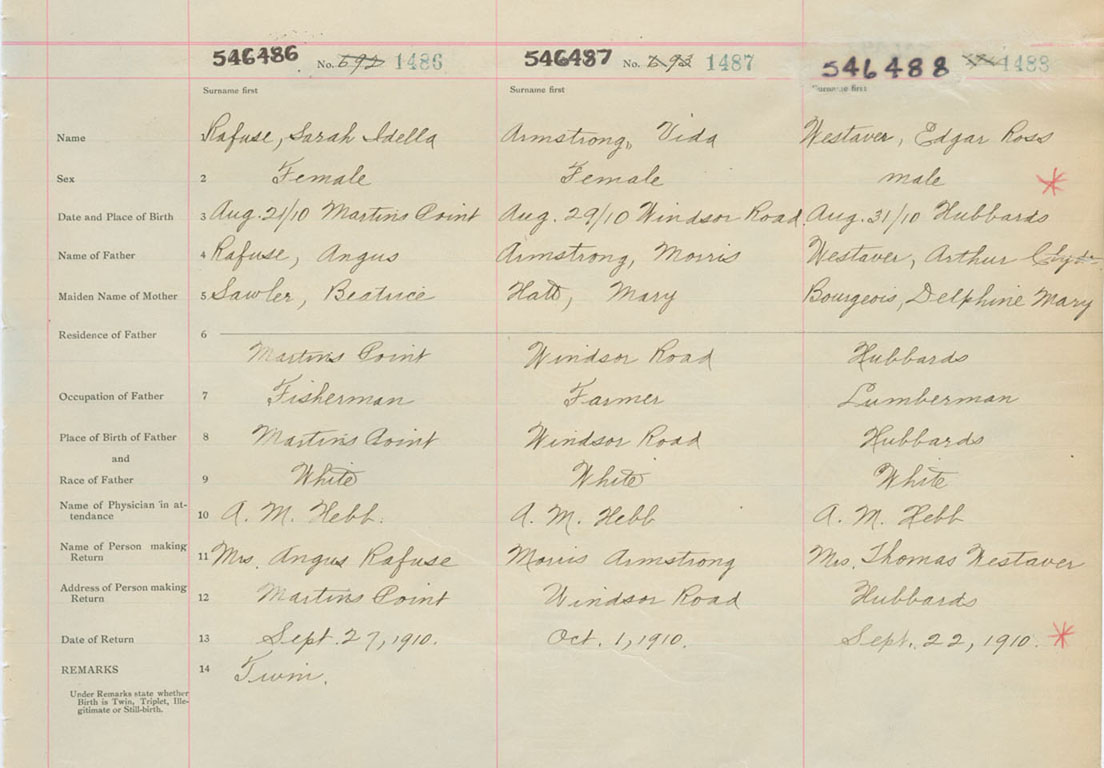 546486 No. 1486 546487 No. 1487 546488 1488
Surname first Surname first Surname first
Name 1 Rafuse, Sarah Idella Armstrong, Vida Westaver, Edgar Ross
Sex 2 Female Female male
Date and Place of Birth 3 Aug. 21/10 Martins Point Aug. 29/10 Windsor Road Aug. 31/10 Hubbards
Name of Father 4 Rafuse, Angus Armstrong, Morris Westaver, Arthur
Maiden Name of Mother 5 Sawler, Beatrice Hatt, Mary Bourgeois, Delphine Mary
Residence of Father 6
Martins Point Windsor Road Hubbards
Occupation of Father 7 Fisherman Farmer Lumberman
Place of Birth of Father 8 Martins Point Windsor Road Hubbards
and
Race of Father 9 White White White
Name of Physician in at-
tendance 10 A. M. Hebb. A. M. Hebb A. M. Hebb
Name of Person making
Return 11 Mrs. Angus Rafuse Morris Armstrong Mrs. Thomas Westaver
Address of Person making
Return 12 Martins Point Windsor Road Hubbards
Date of Return 13 Sept. 27, 1910. Oct. 1, 1910. Sept. 22, 1910.
REMARKS 14 Twin.
Under Remarks state whether
Birth is Twin, Triplet, Ille-
gitimate or Still-birth.